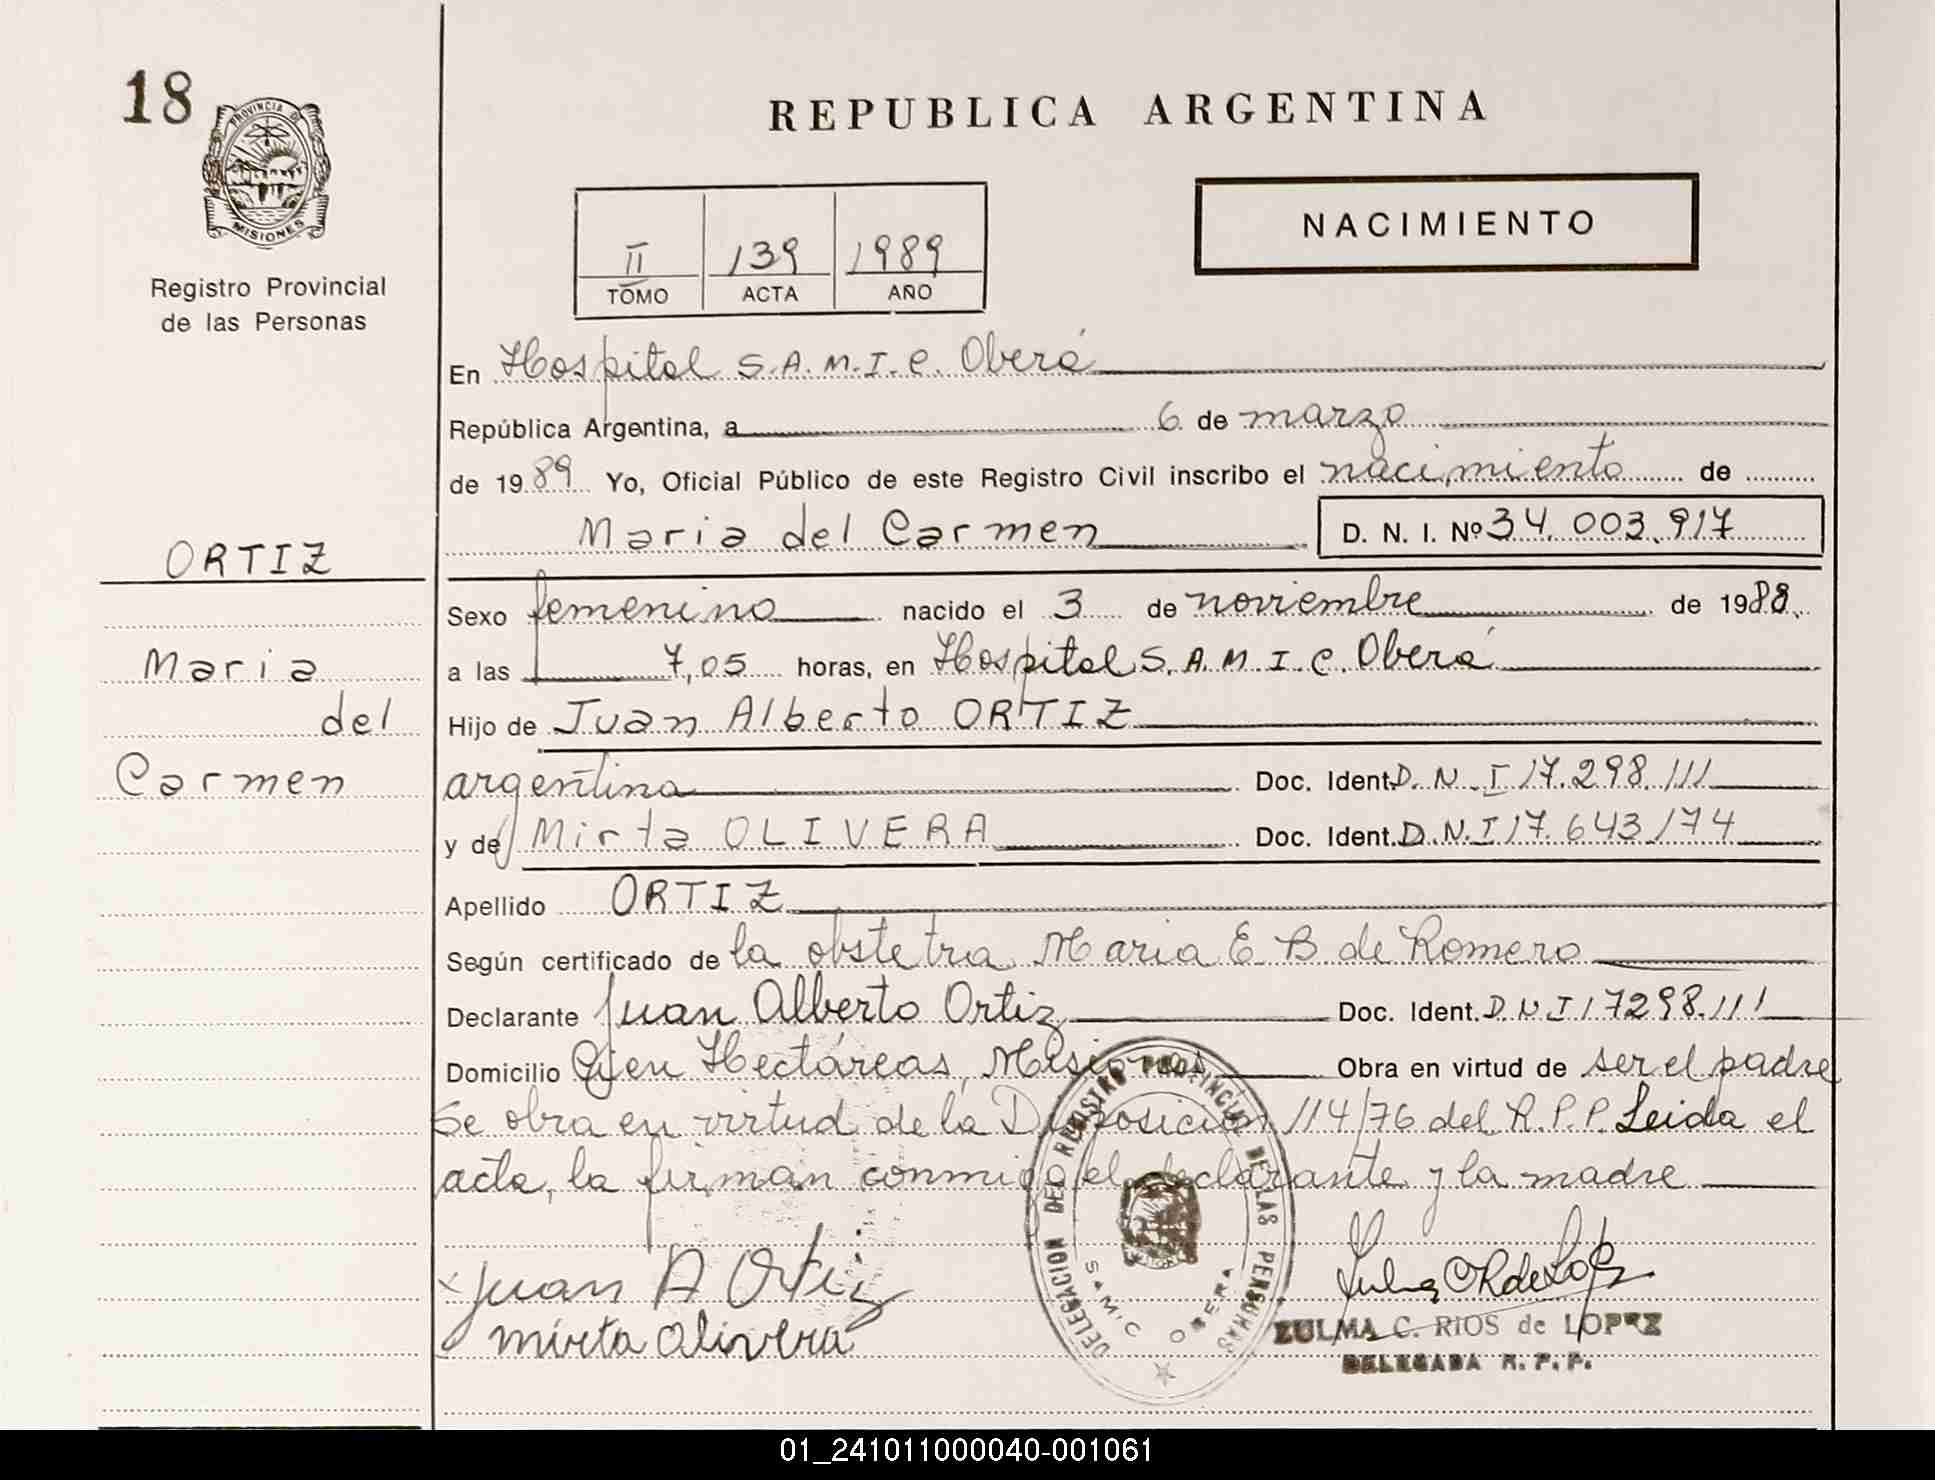 18
PROVINCIA DE
MISIONES
Registro Provincial
de las Personas
REPUBLICA ARGENTINA
II 139 1989
TOMO ACTA AÑO
NACIMIENTO
En Hospital S.A.M.I.C. Oberá
República Argentina, a 6 de marzo
de 1989 Yo, Oficial Público de este Registro Civil inscribo el nacimiento de
Maria del Carmen D. N. I. Nº 34.003.917
ORTIZ
Maria
del
Carmen
Sexo femenino nacido el 3 de noviembre de 1988.
a las 7,05 horas, en Hospital S.A.M.I.C. Oberá
Hijo de Juan Alberto ORTIZ
argentina Doc. Ident. D.N.I 17.298.111
y de Mirta OLIVERA Doc. Ident. D.N.I 17.643174
Apellido ORTIZ
Según certificado de la obstetra Maria E. B. de Romero
Declarante Juan Alberto Ortiz Doc. Ident. D N I 17298.111
Domicilio Cien Hectáreas, Misiones Obra en virtud de ser el padre
Se obra en virtud de la Disposición 114/76 del R.P.P. Leida el
acta, la firman conmigo el declarante y la madre
DELEGACION DEL REGISTRO PROVINCIAL DE LAS PERSONAS
SAMIC OBERA
Juan A Ortiz
Mirta Olivera
ZULMA C. RIOS de LOPEZ
DELEGADA R. P. P.
01_241011000040-001061